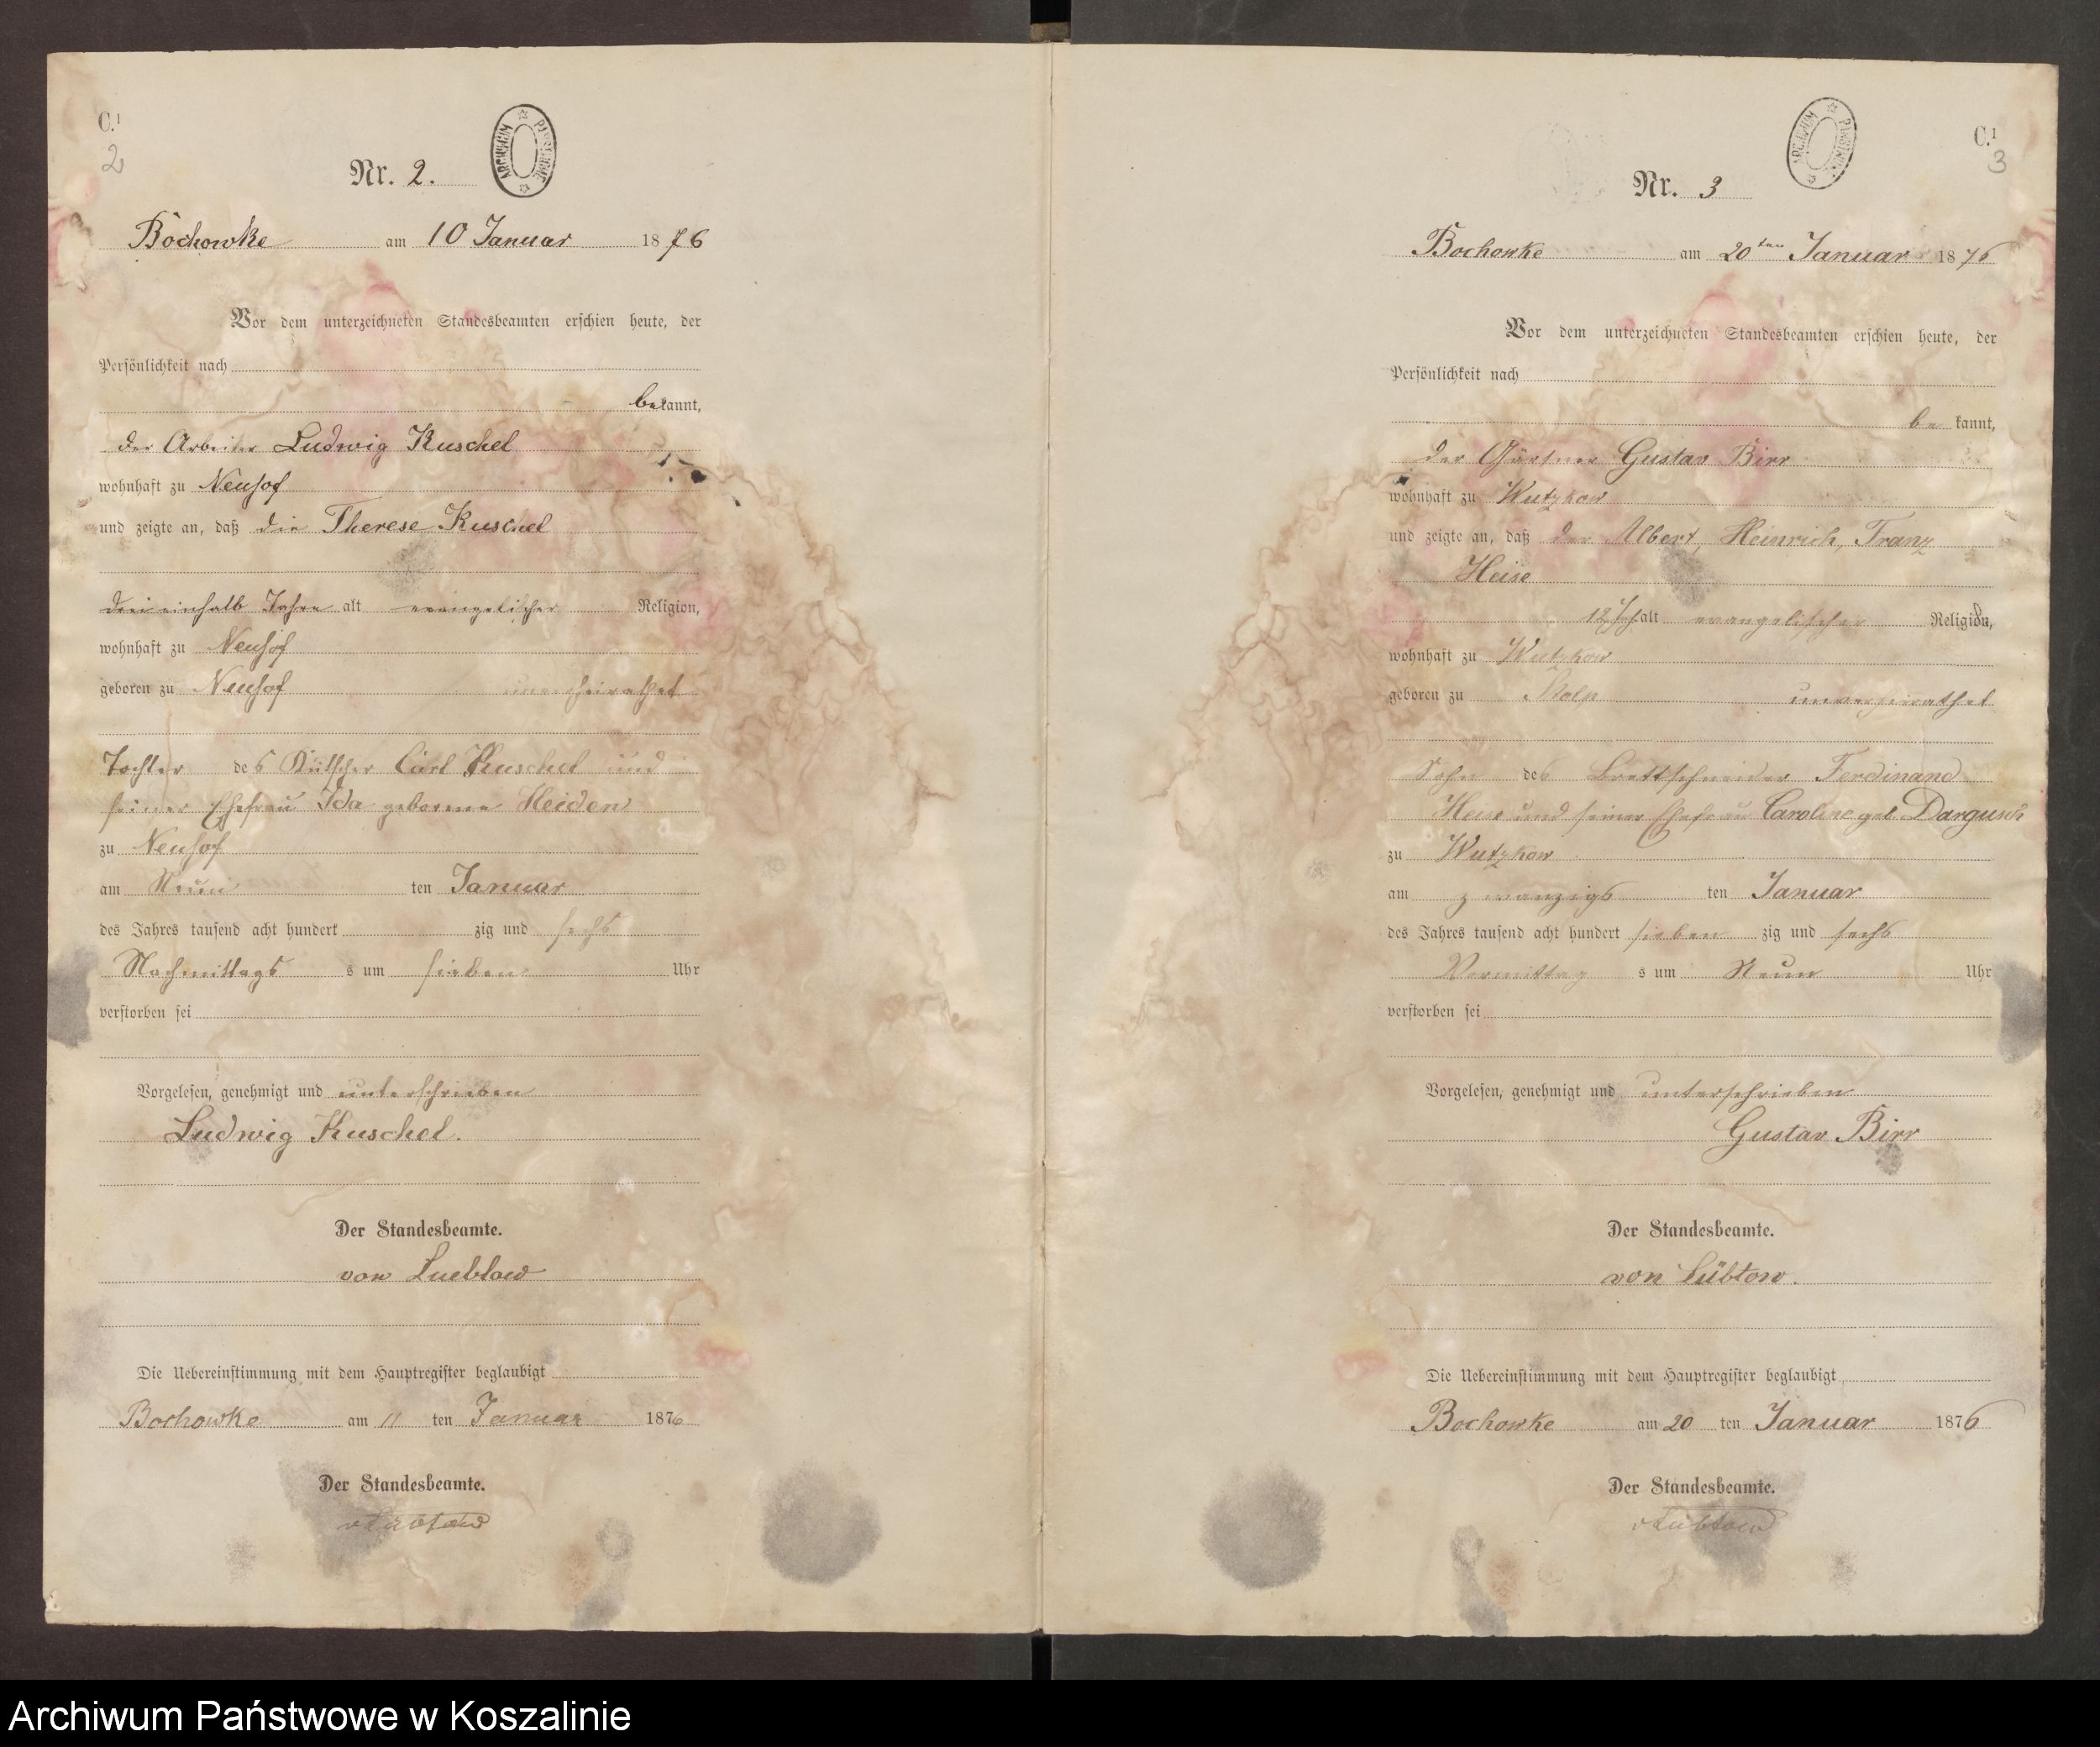 C.¹
2
ARCHIWUM PAŃSTWOWE
Nr. 2.
Bochowke am 10 Januar 1876
Vor dem unterzeichneten Standesbeamten erschien heute, der
Persönlichkeit nach
bekannt,
der Arbeiter Ludwig Kuschel
wohnhaft zu Neuhof
und zeigte an, daß die Therese Kuschel
drei einhalb Jahre alt evangelischer Religion,
wohnhaft zu Neuhof
geboren zu Neuhof unverheirathet
Tochter des Carl Kuschel und
seiner Ehefrau Ida geborene Heiden
zu Neuhof
am Neun ten Januar
des Jahres tausend acht hundert zig und sechs
Nachmittags s um sieben Uhr
verstorben sei
Vorgelesen, genehmigt und unterschrieben
Ludwig Kuschel.
Der Standesbeamte.
von Luebtow
Die Uebereinstimmung mit dem Hauptregister beglaubigt
Bochowke am 11 ten Januar 1876
Der Standesbeamte.
vLübtow
C.¹
3
ARCHIWUM PAŃSTWOWE
Nr. 3
Bochowke am 20ten Januar 1876
Vor dem unterzeichneten Standesbeamten erschien heute, der
Persönlichkeit nach
be kannt,
der Gärtner Gustav Birr
wohnhaft zu Wutzkow
und zeigte an, daß der Albert, Heinrich, Franz
Heise
12 alt evangelischer Religion,
wohnhaft zu Wutzkow
geboren zu Stolp unverheirathet
Sohn des Brettschneider Ferdinand
Heise und seiner Ehefrau Caroline geb. Dargusch
zu Wutzkow
am zwanzigs ten Januar
des Jahres tausend acht hundert sieben zig und sechs
Vormittag s um Neun Uhr
verstorben sei
Vorgelesen, genehmigt und unterschrieben
Gustav Birr
Der Standesbeamte.
von Lübtow.
Die Uebereinstimmung mit dem Hauptregister beglaubigt
Bochowke am 20 ten Januar 1876
Der Standesbeamte.
vLübtow
Archiwum Państwowe w Koszalinie